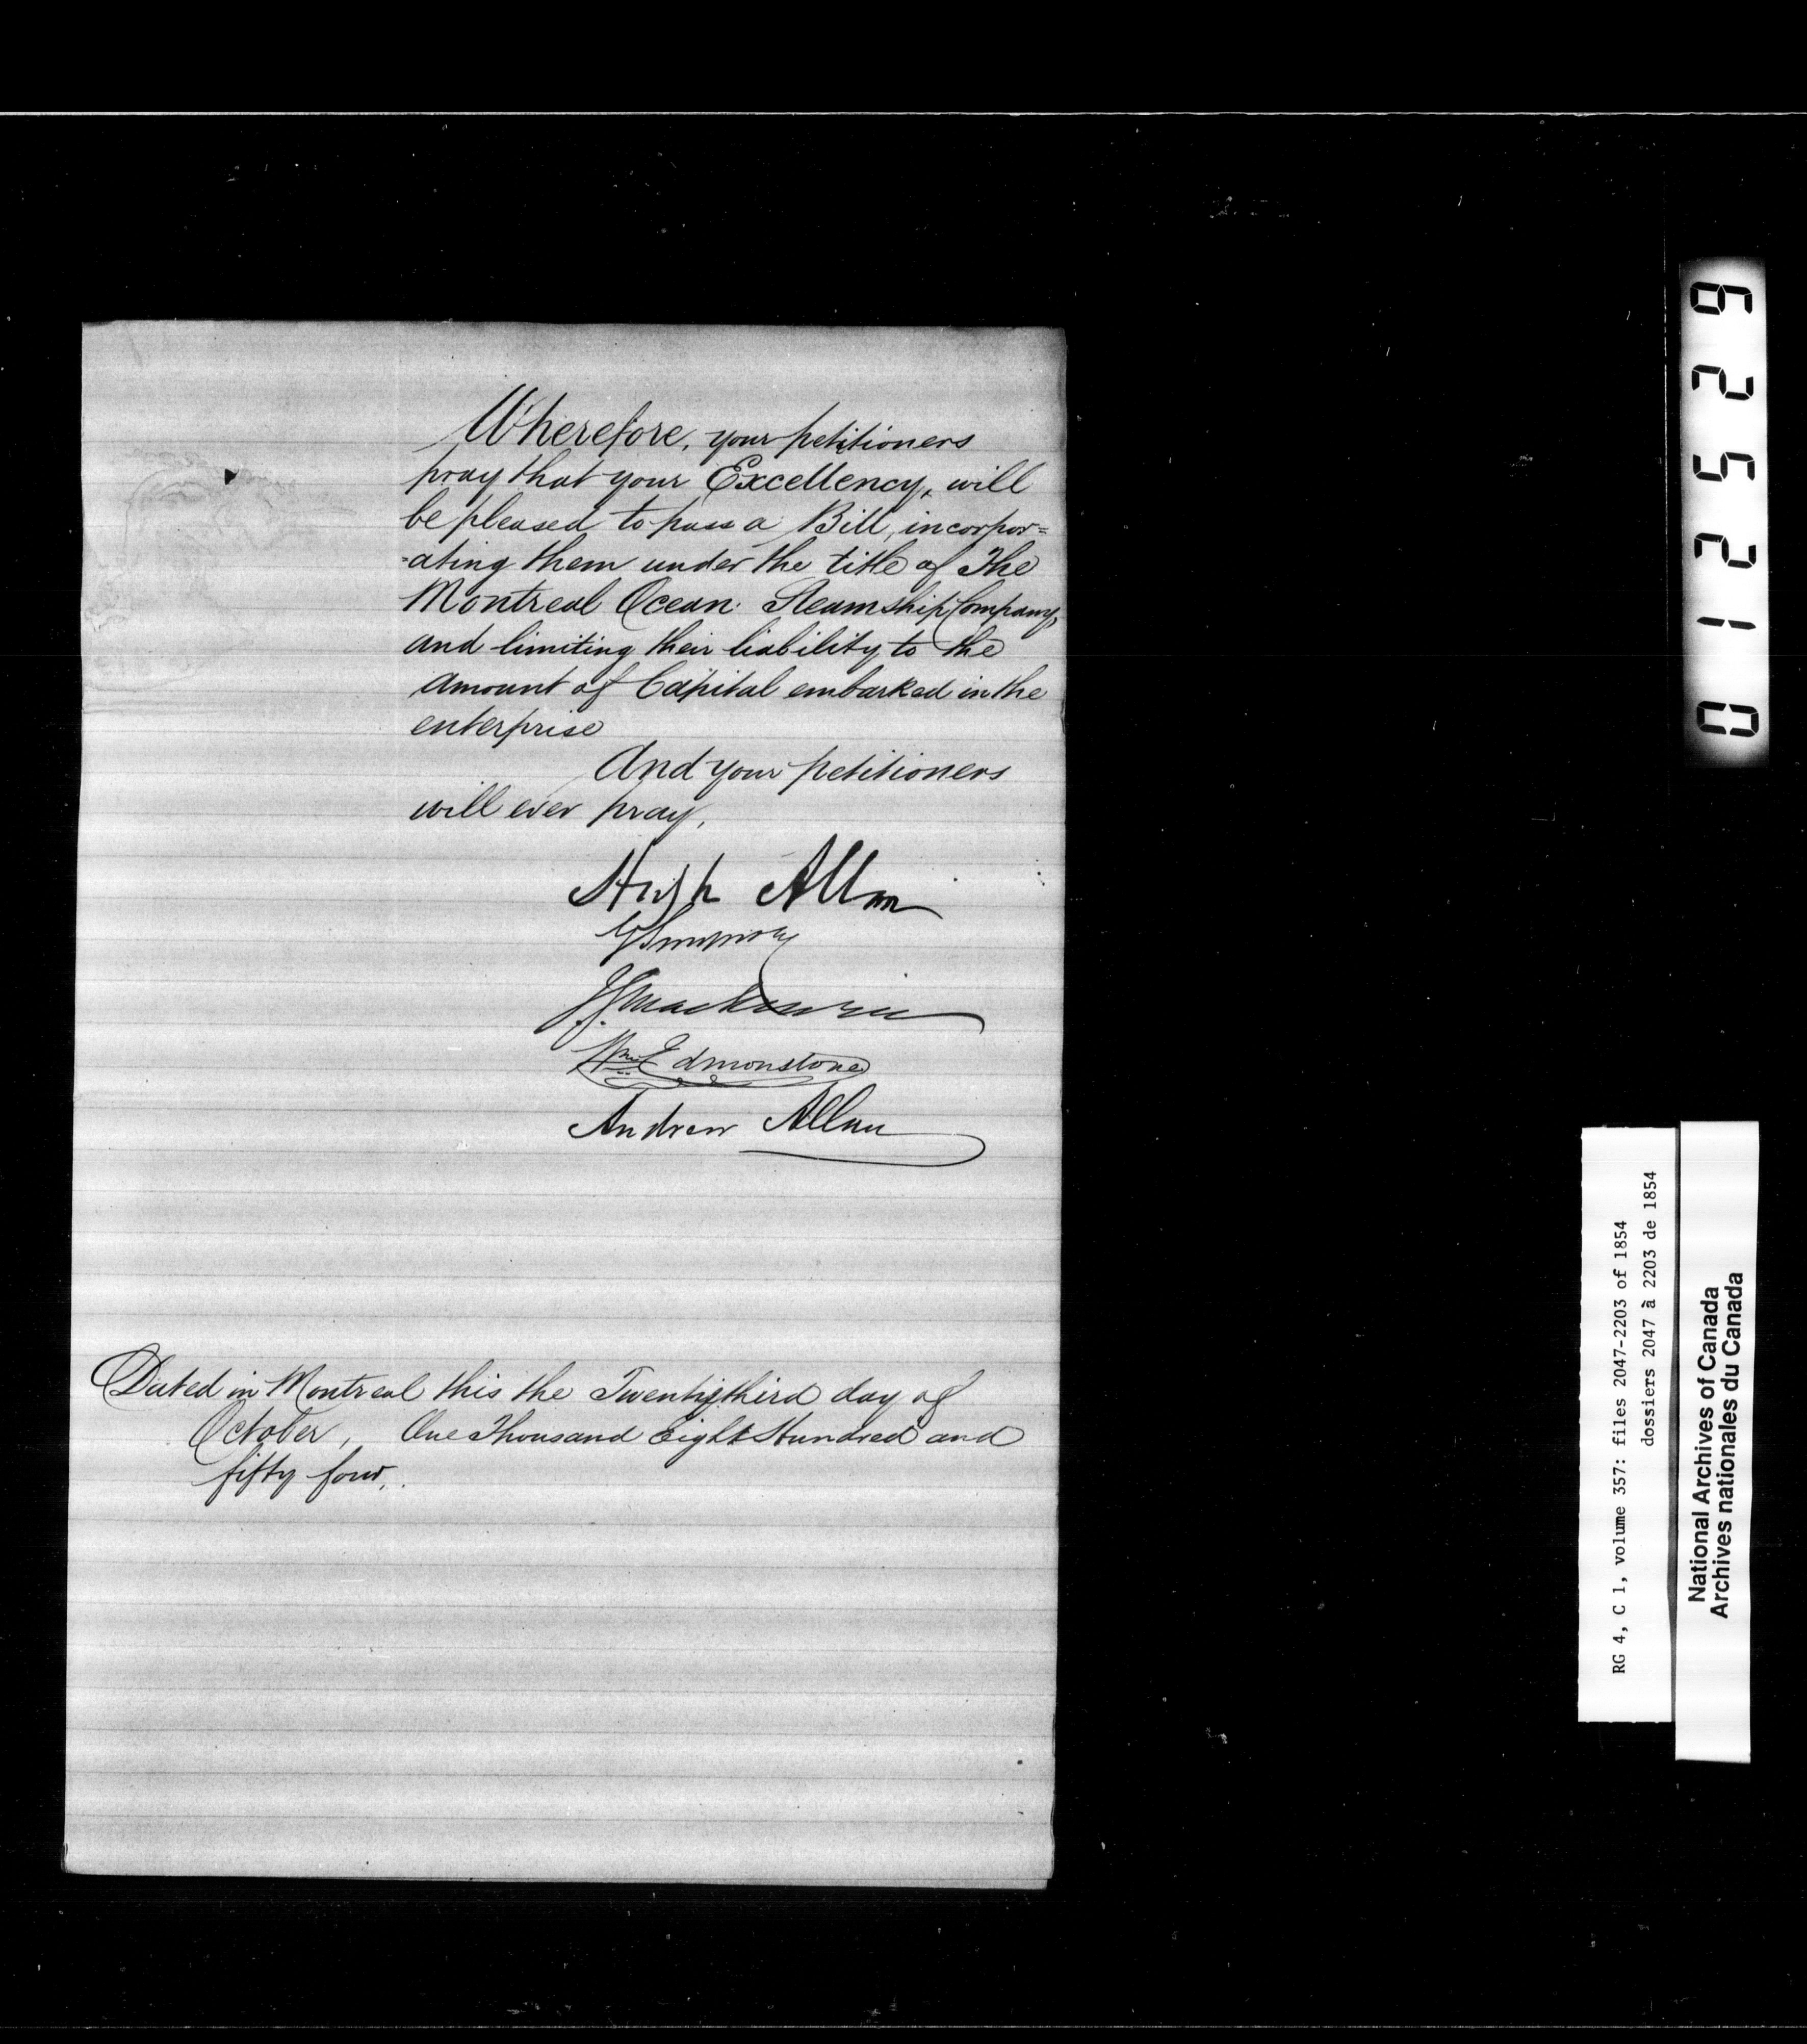 Wherefore, your petitioners
pray that your Excellency, will
be pleased to pass a Bill, incorpor=
=ating them under the title of The
Montreal Ocean Steamship Company,
and limiting their liability to the
amount of Capital embarked in the
enterprise
And your petitioners
will ever pray,
Hugh Allan
G Simpson
Wm Edmonstone
Andrew Allan
Dated in Montreal this the Twentythird day of
October, One Thousand Eight Hundred and
fifty four,.
012529
RG 4, C 1, volume 357: files 2047-2203 of 1854
dossiers 2047 à 2203 de 1854
National Archives of Canada
Archives nationales du Canada